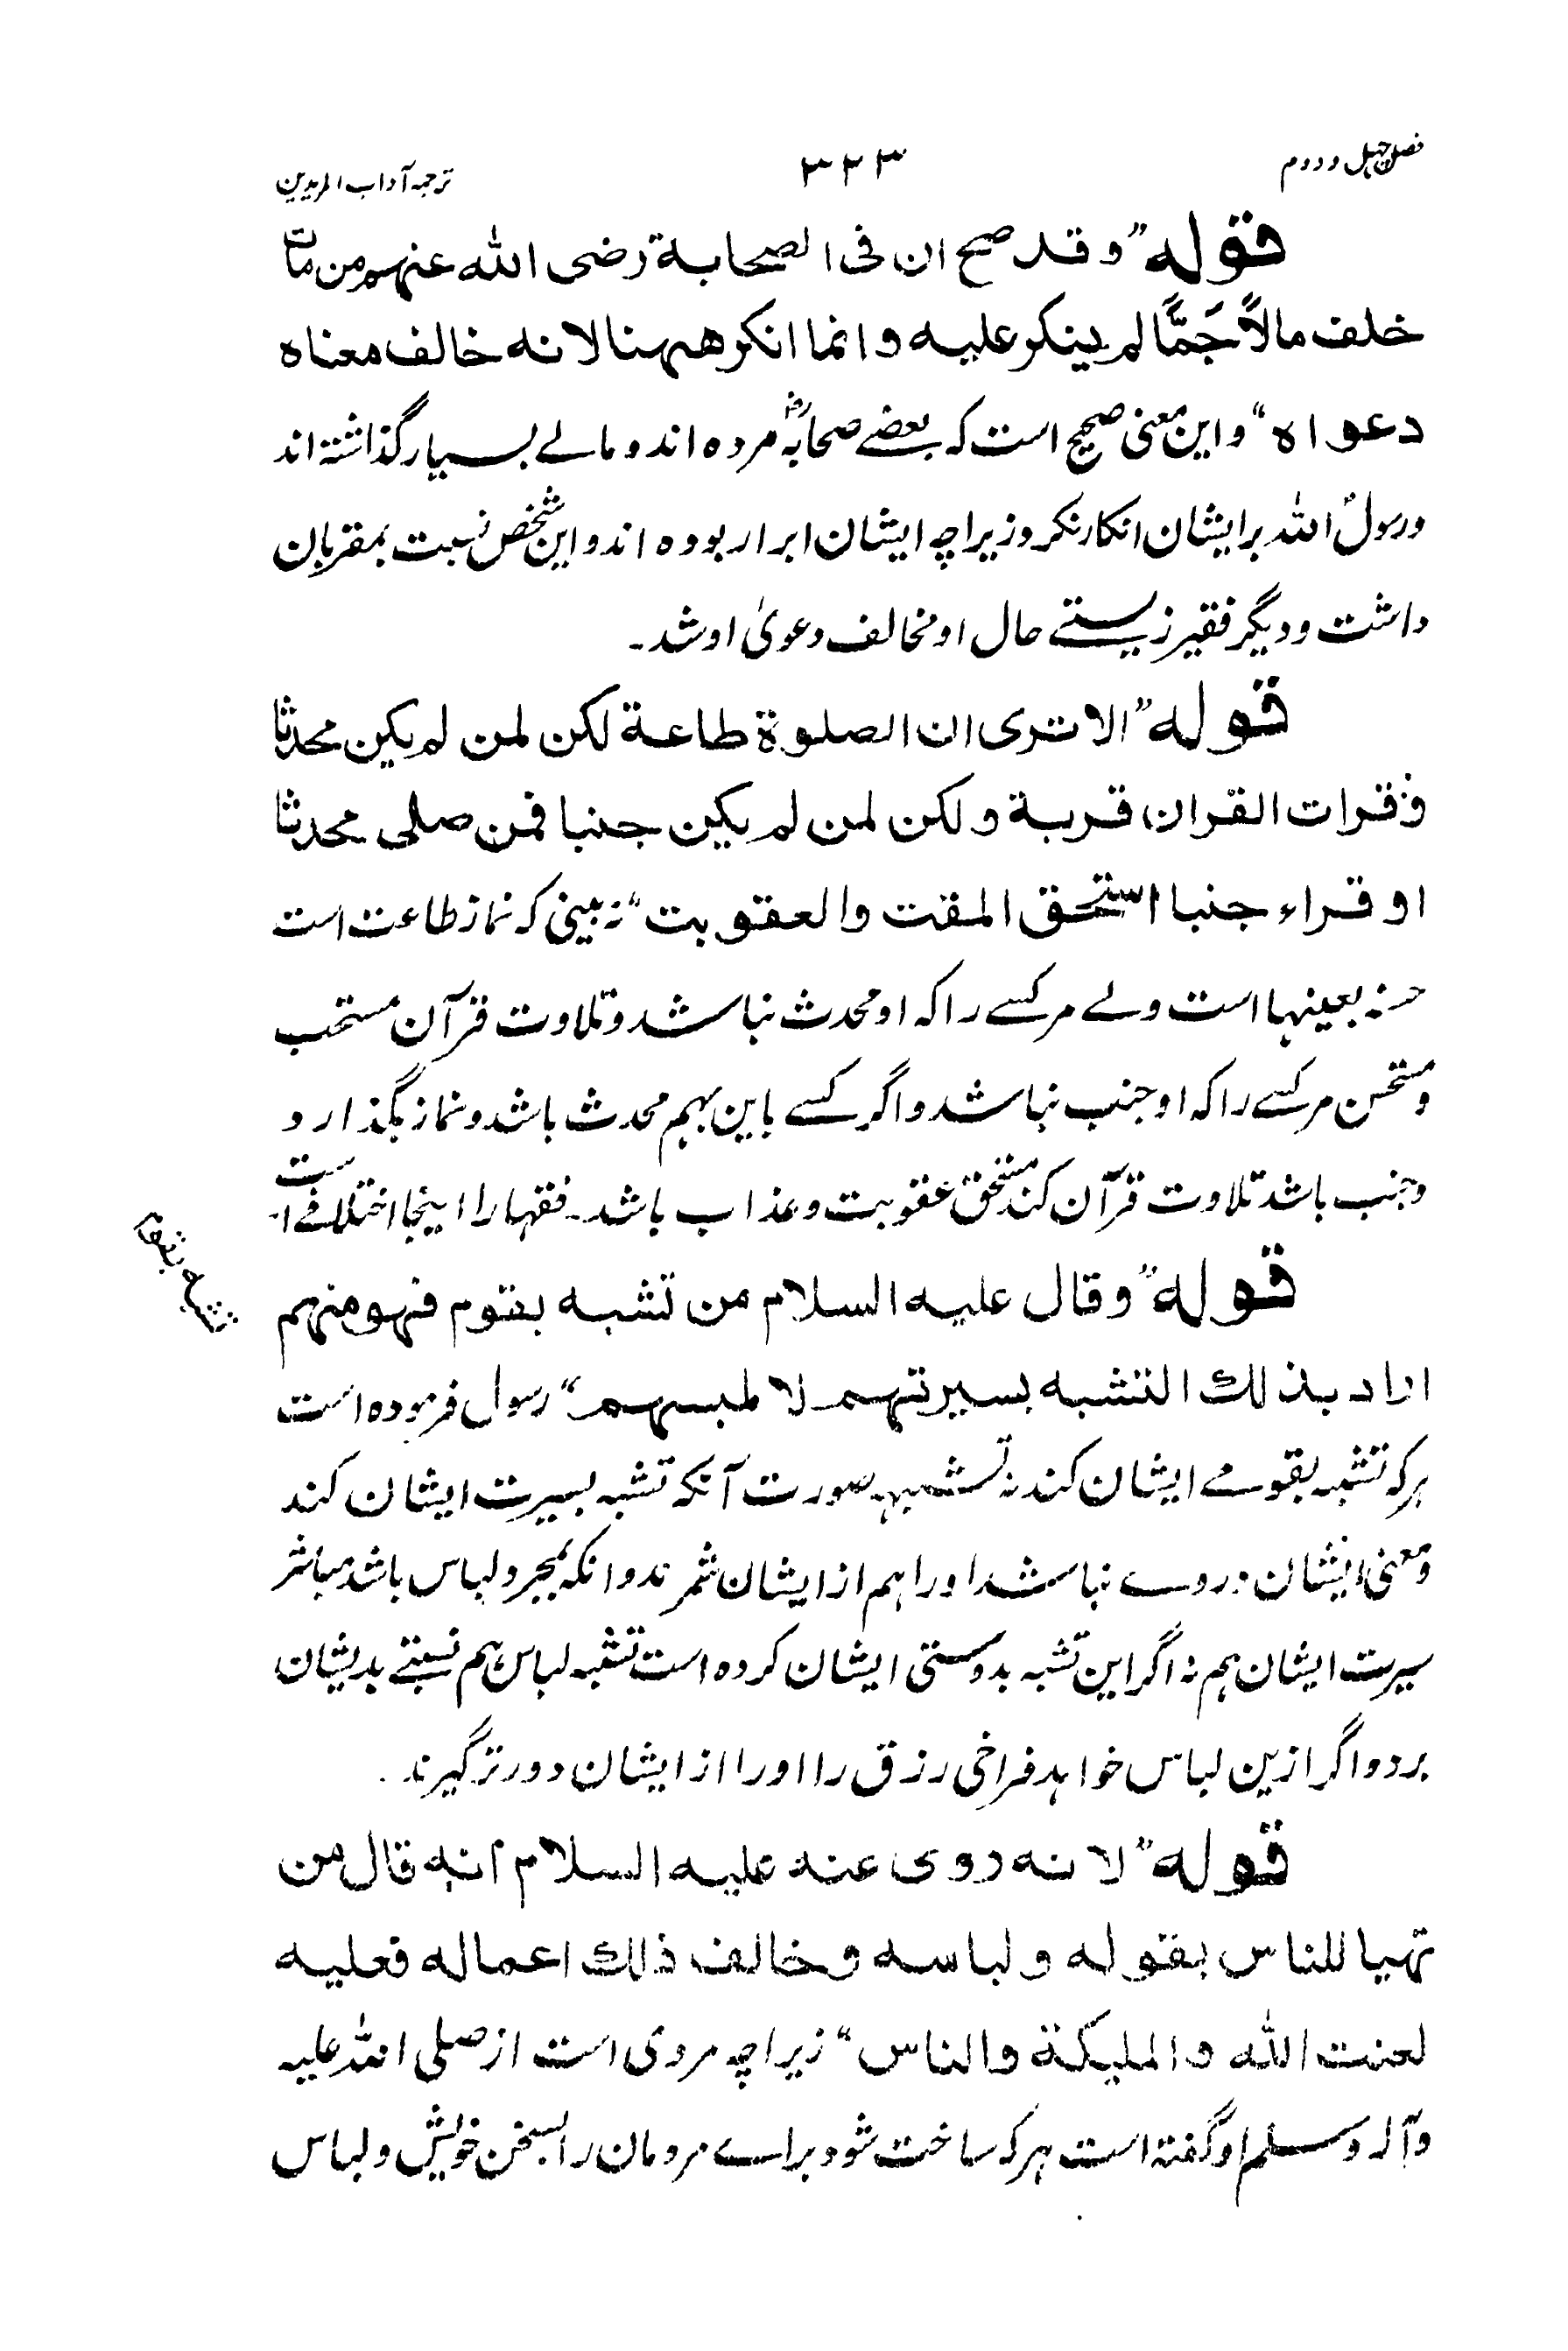 فصل چہل و دوم
۳۲۳
ترجمہ آداب المریدین
قوله ”وقد صح ان فی الصحابة رضی الله عنهم من مات
خلف مالاً جَمًّا لم ینکر علیه وانما انکر ههنا لانه خالف معناه
دعواه“ واین معنی صحیح است کہ بعضے صحابہؓ مردہ اند و مالے بسیار گذاشتہ اند
ورسولؐ اللہ برایشان انکار نکرد زیراچہ ایشان ابرار بودہ اند و این شخص نسبت بمقربان
داشت و دیگر فقیر زیستے حال او مخالف دعویٰ او شد۔
قوله ”الا تری ان الصلوة طاعة لکن لمن لم یکن محدثا
وقرات القران قربة ولکن لمن لم یکن جنبا فمن صلی محدثا
او قراء جنبا استحق المقت والعقوبت“ نہ بینی کہ نماز طاعت است
حسنہ بعینہا است ولے مر کسے را کہ او محدث نباشد و تلاوت قرآن مستحب
و مستحسن مر کسے را کہ او جنب نباشد و اگر کسے باین ہمہ محدث باشد و نماز بگذارد
و جنب باشد تلاوت قرآن کند مستحق عقوبت و عذاب باشد۔ فقہا را اینجا اختلافے است
تشبہ بقوم
قوله ”وقال علیه السلام من تشبه بقوم فهو منهم
اراد بذلك التشبه بسیرتهم لا لمبسهم“ رسول فرمودہ است
ہر کہ تشبہ بقومے ایشان کند نہ تشبہ بصورت آنکہ تشبہ بسیرت ایشان کند
و معنی ایشان در وے نباشد اورا ہم از ایشان شمرند و انکہ بمجرد لباس باشد مباشر
سیرت ایشان ہم نہ اگر این تشبہ بدوستی ایشان کردہ است تشبہ لباس ہم نسبتے بدیشان
برد و اگر ازین لباس خواہد فراخی رزق را اورا از ایشان دورتر گیرند۔
قوله ”لانه روی عنه علیه السلام انه قال من
تهیا للناس بقوله ولباسه وخالف ذلك اعماله فعلیه
لعنت الله والملیکة والناس“ زیراچہ مروی است از صلی اللہ علیہ
وآلہ وسلم او گفتہ است ہر کہ ساخت شود برائے مردمان را بسخن خویش و لباس